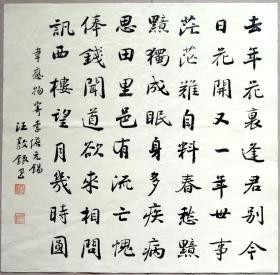 去年花裏逢君別今
日花開又一年世事
茫茫難自料春愁黯
黯獨成眠身多疾病
思田里邑有流亡愧
俸錢聞道欲來相問
訊西樓望月幾時圓
韋應物寄李儋元錫
汪